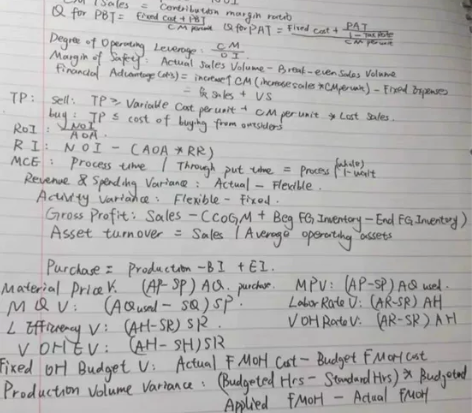 CM / Sales = Contribution margin ratio
Q for PBT = Fixed cost + PBT / CM per unit Q for PAT = Fixed cost + PAT / 1 - Tax rate / CM per unit
Degree of Operating Leverage: CM / OI
Margin of Safety: Actual Sales Volume - Break-even Sales Volume
Financial Advantage = increase CM (increase sales * CM per unit) - Fixed Expenses
sales + VS
TP: Sell: TP ≥ Variable Cost per unit + CM per unit → Lost Sales.
buy: TP ≤ cost of buying from outsiders
ROI: NOI / AOA
RI: NOI - (AOA * RR)
MCE: Process time / Through put time = Process / 1-wait
Revenue & Spending Variance: Actual - Flexible.
Activity Variance: Flexible - Fixed.
Gross Profit: Sales - (COGM + Beg FG Inventory - End FG Inventory)
Asset turnover = Sales / Average operating assets
Purchase = Production - BI + EI.
Material Price V: (AP-SP) AQ purchase. MPV: (AP-SP) AQ used.
MQV: (AQ used - SQ) SP. Labor Rate V: (AR-SR) AH
L Efficiency V: (AH-SR) SR. VOH Rate V: (AR-SR) AH
VOHEV: (AH-SH) SR
Fixed OH Budget V: Actual FMOH Cost - Budget FMOH Cost
Production Volume Variance: (Budgeted Hrs - Standard Hrs) * Budgeted
Applied FMOH - Actual FMOH